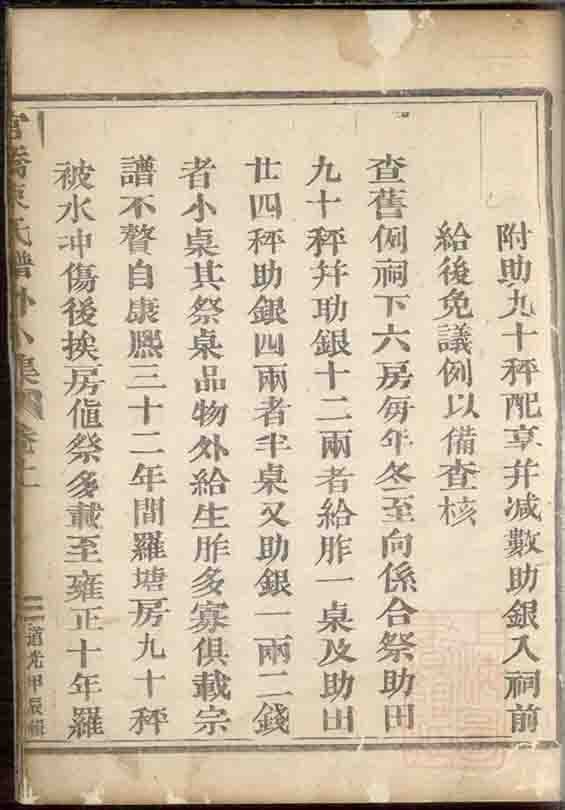 附助九十秤配享并减數助銀入祠前
給後免議例以備查核
查舊例祠下六房每年冬至向係合祭助田
九十秤并助銀十二兩者給胙一桌及助田
廿四秤助銀四兩者半桌又助銀一兩二錢
者小桌其祭桌品物外給生胙多寡俱載宗
譜不贅自康熈三十二年間羅塘房九十秤
被水冲傷後挨房值祭多載至雍正十年羅
氏譜外小集
道光甲辰輯